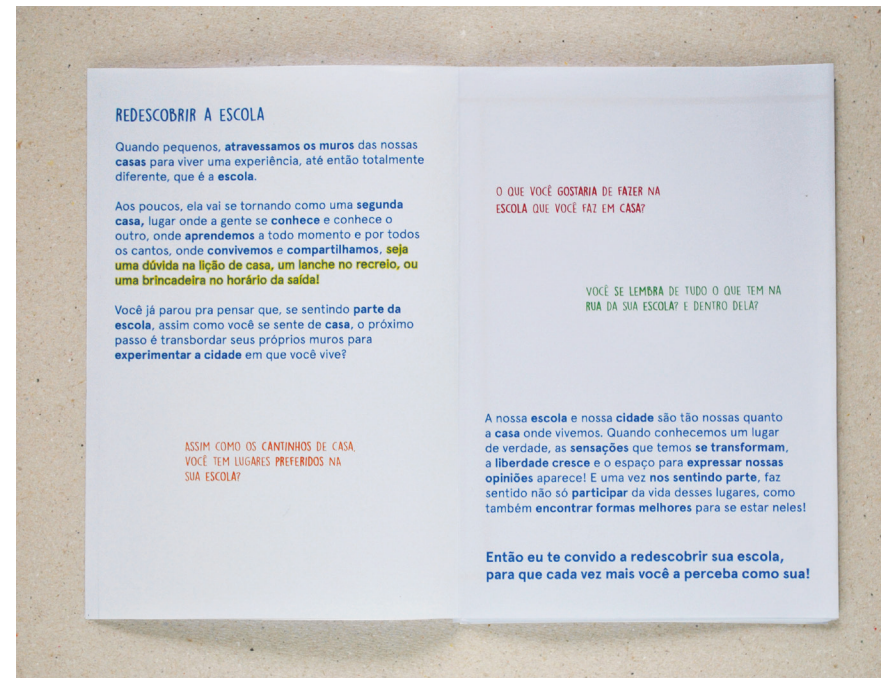 REDESCOBRIR A ESCOLA
Quando pequenos, atravessamos os muros das nossas
casas para viver uma experiência, até então totalmente
diferente, que é a escola.
Aos poucos, ela vai se tornando como uma segunda
casa, lugar onde a gente se conhece e conhece o
outro, onde aprendemos a todo momento e por todos
os cantos, onde convivemos e compartilhamos, seja
uma dúvida na lição de casa, um lanche no recreio, ou
uma brincadeira no horário da saída!
Você já parou pra pensar que, se sentindo parte da
escola, assim como você se sente de casa, o próximo
passo é transbordar seus próprios muros para
experimentar a cidade em que você vive?
ASSIM COMO OS CANTINHOS DE CASA,
VOCÊ TEM LUGARES PREFERIDOS NA
SUA ESCOLA?
O QUE VOCÊ GOSTARIA DE FAZER NA
ESCOLA QUE VOCÊ FAZ EM CASA?
VOCÊ SE LEMBRA DE TUDO O QUE TEM NA
RUA DA SUA ESCOLA? E DENTRO DELA?
A nossa escola e nossa cidade são tão nossas quanto
a casa onde vivemos. Quando conhecemos um lugar
de verdade, as sensações que temos se transformam,
a liberdade cresce e o espaço para expressar nossas
opiniões aparece! E uma vez nos sentindo parte, faz
sentido não só participar da vida desses lugares, como
também encontrar formas melhores para se estar neles!
Então eu te convido a redescobrir sua escola,
para que cada vez mais você a perceba como sua!